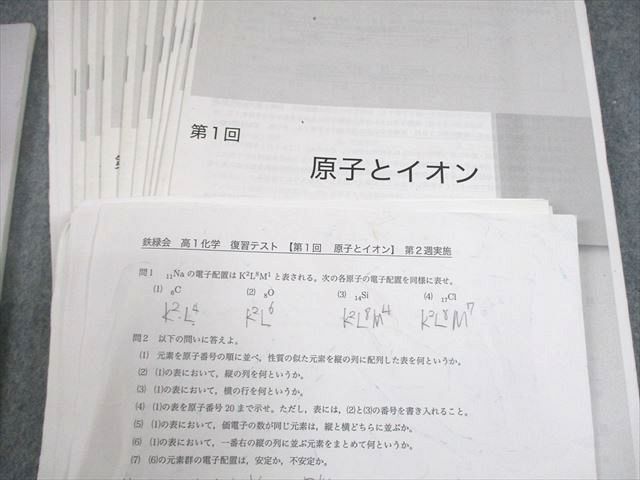 第1回
原子とイオン
鉄緑会 高1化学 復習テスト 【第1回 原子とイオン】 第2週実施
問1 ₁₁Na の電子配置は K²L⁸M¹ と表される。次の各原子の電子配置を同様に表せ。
(1) ₆C (2) ₈O (3) ₁₄Si (4) ₁₇Cl
K²L⁴ K²L⁶ K²L⁸M⁴ K²L⁸M⁷
問2 以下の問いに答えよ。
(1) 元素を原子番号の順に並べ，性質の似た元素を縦の列に配列した表を何というか。
(2) (1)の表において，縦の列を何というか。
(3) (1)の表において，横の行を何というか。
(4) (1)の表を原子番号 20 まで示せ。ただし，表には，(2)と(3)の番号を書き入れること。
(5) (1)の表において，価電子の数が同じ元素は，縦と横どちらに並ぶか。
(6) (1)の表において，一番右の縦の列に並ぶ元素をまとめて何というか。
(7) (6)の元素群の電子配置は，安定か，不安定か。